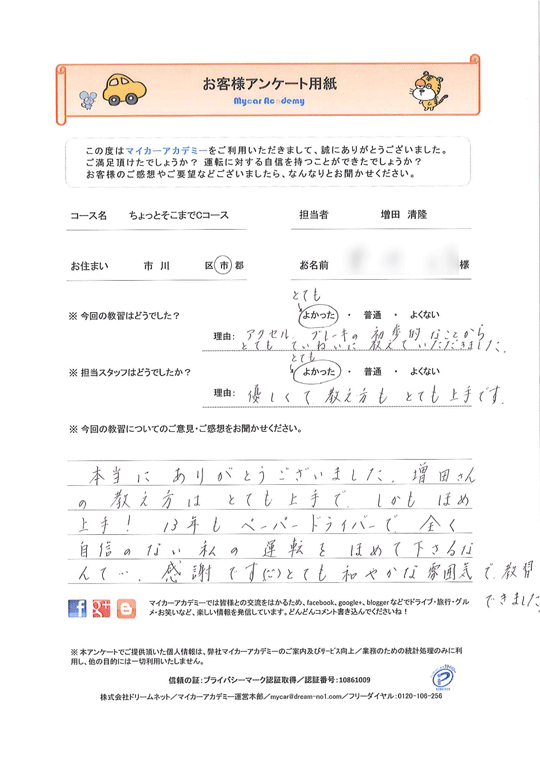 お客様アンケート用紙
Mycar Academy
この度はマイカーアカデミーをご利用いただきまして、誠にありがとうございました。
ご満足頂けたでしょうか？ 運転に対する自信を持つことができたでしょうか？
お客様のご感想やご要望などございましたら、なんなりとお聞かせください。
コース名 ちょっとそこまでCコース 担当者 増田 清隆
お住まい 市 川 区 市 郡 お名前 様
とても
※ 今回の教習はどうでした？ よかった ・ 普通 ・ よくない
理由: アクセル、ブレーキの初歩的なことから
とてもていねいに教えていただきました。
とても
※ 担当スタッフはどうでしたか？ よかった ・ 普通 ・ よくない
理由: 優しくて教え方もとても上手です。
※ 今回の教習についてのご意見・ご感想をお聞かせください。
本当にありがとうございました。増田さん
の教え方はとても上手で、しかもほめ
上手！ 13年もペーパードライバーで、全く
自信のない私の運転をほめて下さるな
んて…。感謝です(^^)とても和やかな雰囲気で、教習
できました。
マイカーアカデミーでは皆様との交流をはかるため、facebook、google+、bloggerなどでドライブ・旅行・グル
メ・お笑いなど、楽しい情報を発信しています。どんどんコメント書き込んでくださいね！
※ 本アンケートでご提供頂いた個人情報は、弊社マイカーアカデミーのご案内及びサービス向上／業務のための統計処理のみに利
用し、他の目的には一切利用いたしません。
信頼の証：プライバシーマーク認証取得／認証番号：10861009
株式会社ドリームネット／マイカーアカデミー運営本部／mycar@dream-no1.com／フリーダイヤル：0120-106-256